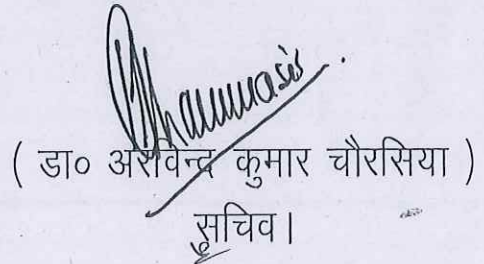 ( डा० अरविन्द कुमार चौरसिया )
सचिव।